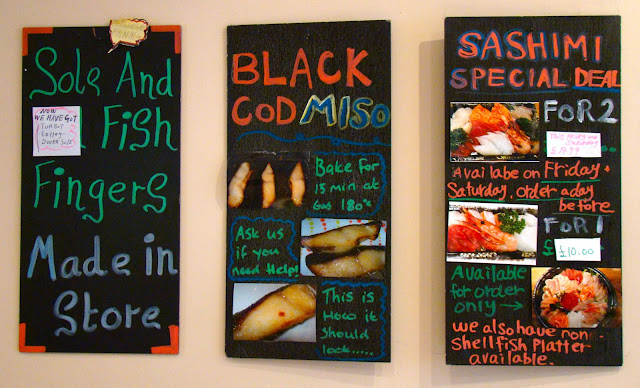 Sole And
Fish
NOW
WE HAVE GOT
TURBOT
Coley
DOVER SOLE
Fingers
Made in
Store
BLACK
COD MISO
Bake for
15 min at
Gas 180°c
Ask us
if you
need Help!
This is
How it
Should
look.....
SASHIMI
SPECIAL DEAL
FOR 2
This Friday and
Saturday
£19.99
Availabe on Friday +
Saturday. order a day
before
FOR 1
£10.00
Available
for order
only →
we also have non
Shellfish Platter
available.